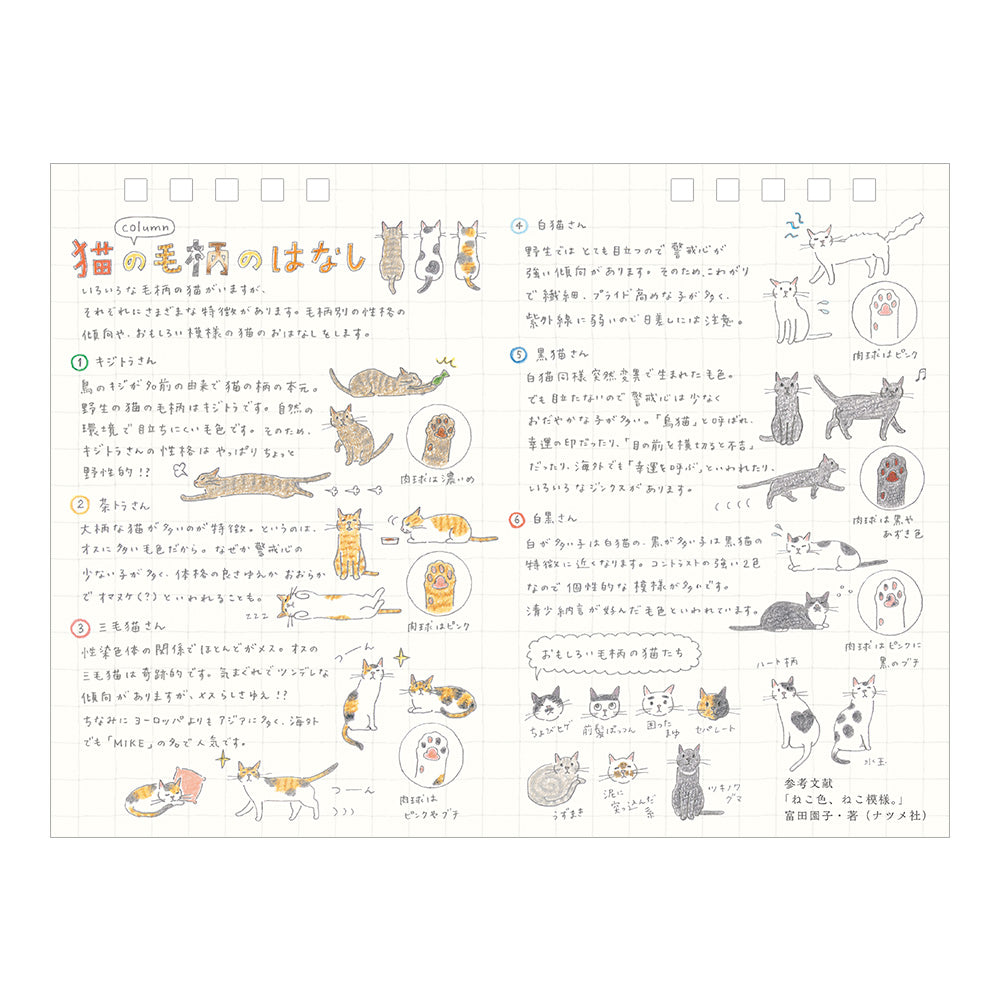 column
猫の毛柄のはなし
いろいろな毛柄の猫がいますが、
それぞれにさまざまな特徴があります。毛柄別の性格の
傾向や、おもしろい模様の猫のおはなしをします。
1 キジトラさん
鳥のキジが名前の由来で猫の柄の本元。
野生の猫の毛柄はキジトラです。自然の
環境で目立ちにくい毛色です。そのため、
キジトラさんの性格はやっぱりちょっと
野性的!?
肉球は濃いめ
2 茶トラさん
大柄な猫が多いのが特徴。というのは、
オスに多い毛色だから。なぜか警戒心の
少ない子が多く、体格の良さゆえかおおらか
でオマヌケ(?)といわれることも。
zzzz
肉球はピンク
3 三毛猫さん
性染色体の関係でほとんどがメス。オスの
三毛猫は奇跡的です。気まぐれでツンデレな
傾向がありますが、メスらしさゆえ!?
ちなみにヨーロッパよりもアジアに多く、海外
でも「MIKE」の名で人気です。
つーん
つーん
肉球は
ピンクやブチ
4 白猫さん
野生ではとても目立つので警戒心が
強い傾向があります。そのため、こわがり
で繊細、プライド高めな子が多く、
紫外線に弱いので日差しには注意。
肉球はピンク
5 黒猫さん
白猫同様突然変異で生まれた毛色。
でも目立たないので警戒心は少なく
おだやかな子が多い。「烏猫」と呼ばれ、
幸運の印だったり、「目の前を横切ると不吉」
だったり、海外でも「幸運を呼ぶ」といわれたり、
いろいろなジンクスがあります。
肉球は黒や
あずき色
6 白黒さん
白が多い子は白猫の、黒が多い子は黒猫の
特徴に近くなります。コントラストの強い2色
なので個性的な模様が多いです。
清少納言が好んだ毛色といわれています。
肉球はピンクに
黒のブチ
おもしろい毛柄の猫たち
ちょびヒゲ
前髪ぱっつん
困った
まゆ
セパレート
ハート柄
水玉
うずまき
泥に
突っ込んだ
系
ツキノワ
グマ
参考文献
「ねこ色、ねこ模様。」
富田園子・著(ナツメ社)